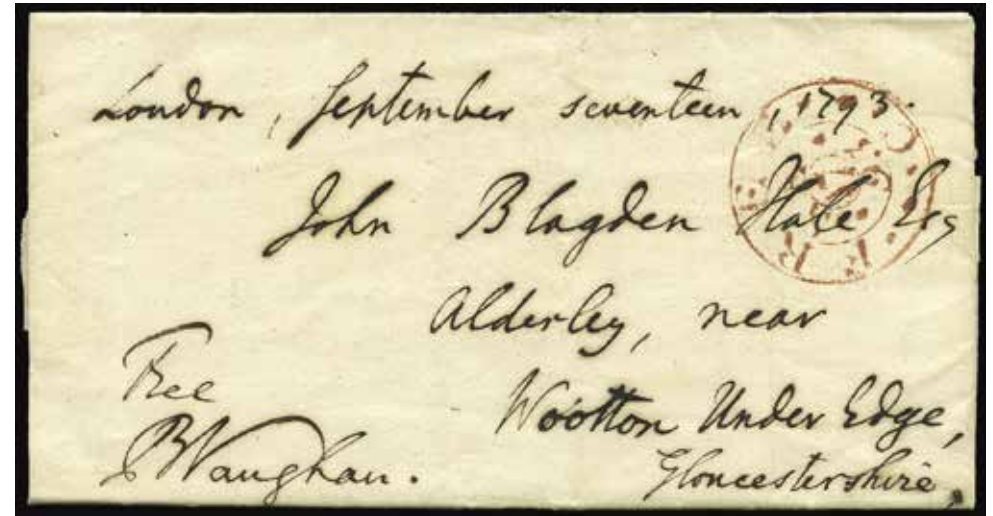 London, September seventeen, 1793.
John Blagden Hale Esq
Alderley, near
Wootton Under Edge,
Gloucestershire,
Free
BVaughan.